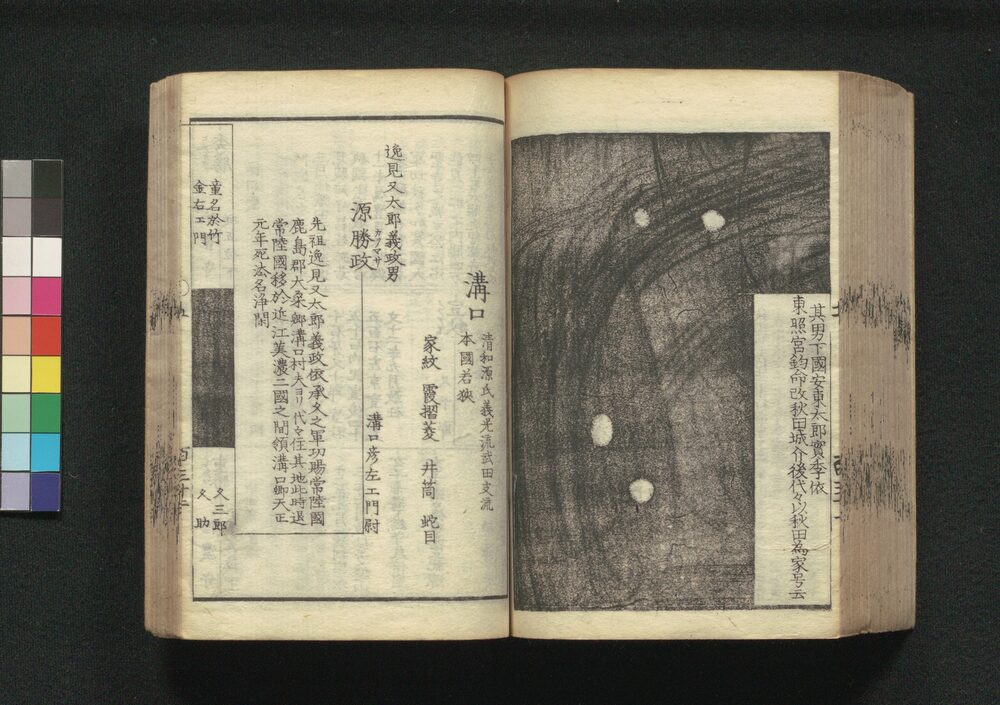 其男下國安東太郎實季依
東照宮鈞命改秋田城介後代々以秋田為家号云
溝口
清和源氏義光流武田支流
本國若狹
家紋 霞摺菱 井筒 蛇目
逸見又太郎義政男
源勝政
カツマサ
溝口彦左エ門尉
先祖逸見又太郎義政依承久之軍功賜常陸國
鹿島郡大桒郷溝口村夫ヨリ代々住其地此時退
常陸國移於近江美濃二國之間領溝口郷天正
元年死法名浄閑
童名於竹
金右エ門
又三郎
又助
百三十二